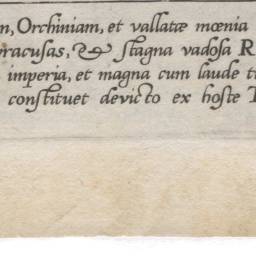 n, Orchiniam, et vallatæ mœnia
racusas, & stagna vadosa R
imperia, et magna cum laude t
constituet devicto ex hoste